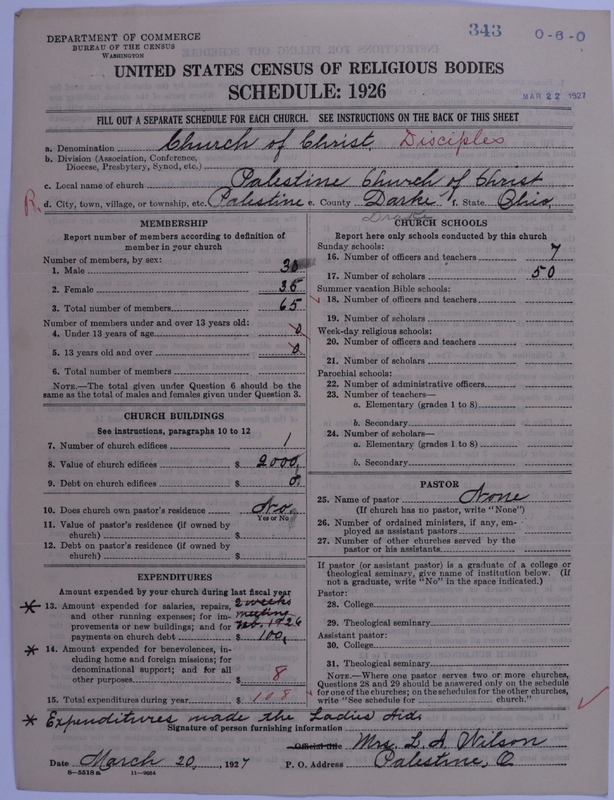 343
O-6-0
DEPARTMENT OF COMMERCE
BUREAU OF THE CENSUS
WASHINGTON
UNITED STATES CENSUS OF RELIGIOUS BODIES
SCHEDULE: 1926
MAR 22 1927
FILL OUT A SEPARATE SCHEDULE FOR EACH CHURCH. SEE INSTRUCTIONS ON THE BACK OF THIS SHEET
a. Denomination Church of Christ, Disciples
b. Division (Association, Conference,
Diocese, Presbytery, Synod, etc.)
c. Local name of church Palestine Church of Christ
R. d. City, town, village, or township, etc. Palestine e. County Darke f. State Ohio
Drake
MEMBERSHIP
Report number of members according to definition of
member in your church
Number of members, by sex:
1. Male 30
2. Female 35
3. Total number of members 65
Number of members under and over 13 years old:
4. Under 13 years of age 0
5. 13 years old and over 0
6. Total number of members
NOTE.—The total given under Question 6 should be the
same as the total of males and females given under Question 3.
CHURCH BUILDINGS
See instructions, paragraphs 10 to 12
7. Number of church edifices 1
8. Value of church edifices $ 2000
9. Debt on church edifices $ 0
10. Does church own pastor's residence No
Yes or No
11. Value of pastor's residence (if owned by
church) $
12. Debt on pastor's residence (if owned by
church) $
EXPENDITURES
Amount expended by your church during last fiscal year
* 13. Amount expended for salaries, repairs, 2 weeks
and other running expenses; for im- meeting
provements or new buildings; and for no. 1926
payments on church debt $ 100,
* 14. Amount expended for benevolences, in-
cluding home and foreign missions; for
denominational support; and for all
other purposes $ 8
15. Total expenditures during year $ 108
CHURCH SCHOOLS
Report here only schools conducted by this church
Sunday schools:
16. Number of officers and teachers 7
17. Number of scholars 50
Summer vacation Bible schools:
18. Number of officers and teachers
19. Number of scholars
Week-day religious schools:
20. Number of officers and teachers
21. Number of scholars
Parochial schools:
22. Number of administrative officers
23. Number of teachers—
a. Elementary (grades 1 to 8)
b. Secondary
24. Number of scholars—
a. Elementary (grades 1 to 8)
b. Secondary
PASTOR
25. Name of pastor None
(If church has no pastor, write "None")
26. Number of ordained ministers, if any, em-
ployed as assistant pastors
27. Number of other churches served by the
pastor or his assistants
If pastor (or assistant pastor) is a graduate of a college or
theological seminary, give name of institution below. (If
not a graduate, write "No" in the space indicated.)
Pastor:
28. College
29. Theological seminary
Assistant pastor:
30. College
31. Theological seminary
NOTE.—Where one pastor serves two or more churches,
Questions 28 and 29 should be answered only on the schedule
for one of the churches; on the schedules for the other churches,
write "See schedule for church."
* Expenditures made the Ladies Aid.
Signature of person furnishing information
Official title Mrs. L. A. Wilson
Date March 20, 1927 P. O. Address Palestine, O
8—5518a 11—9064